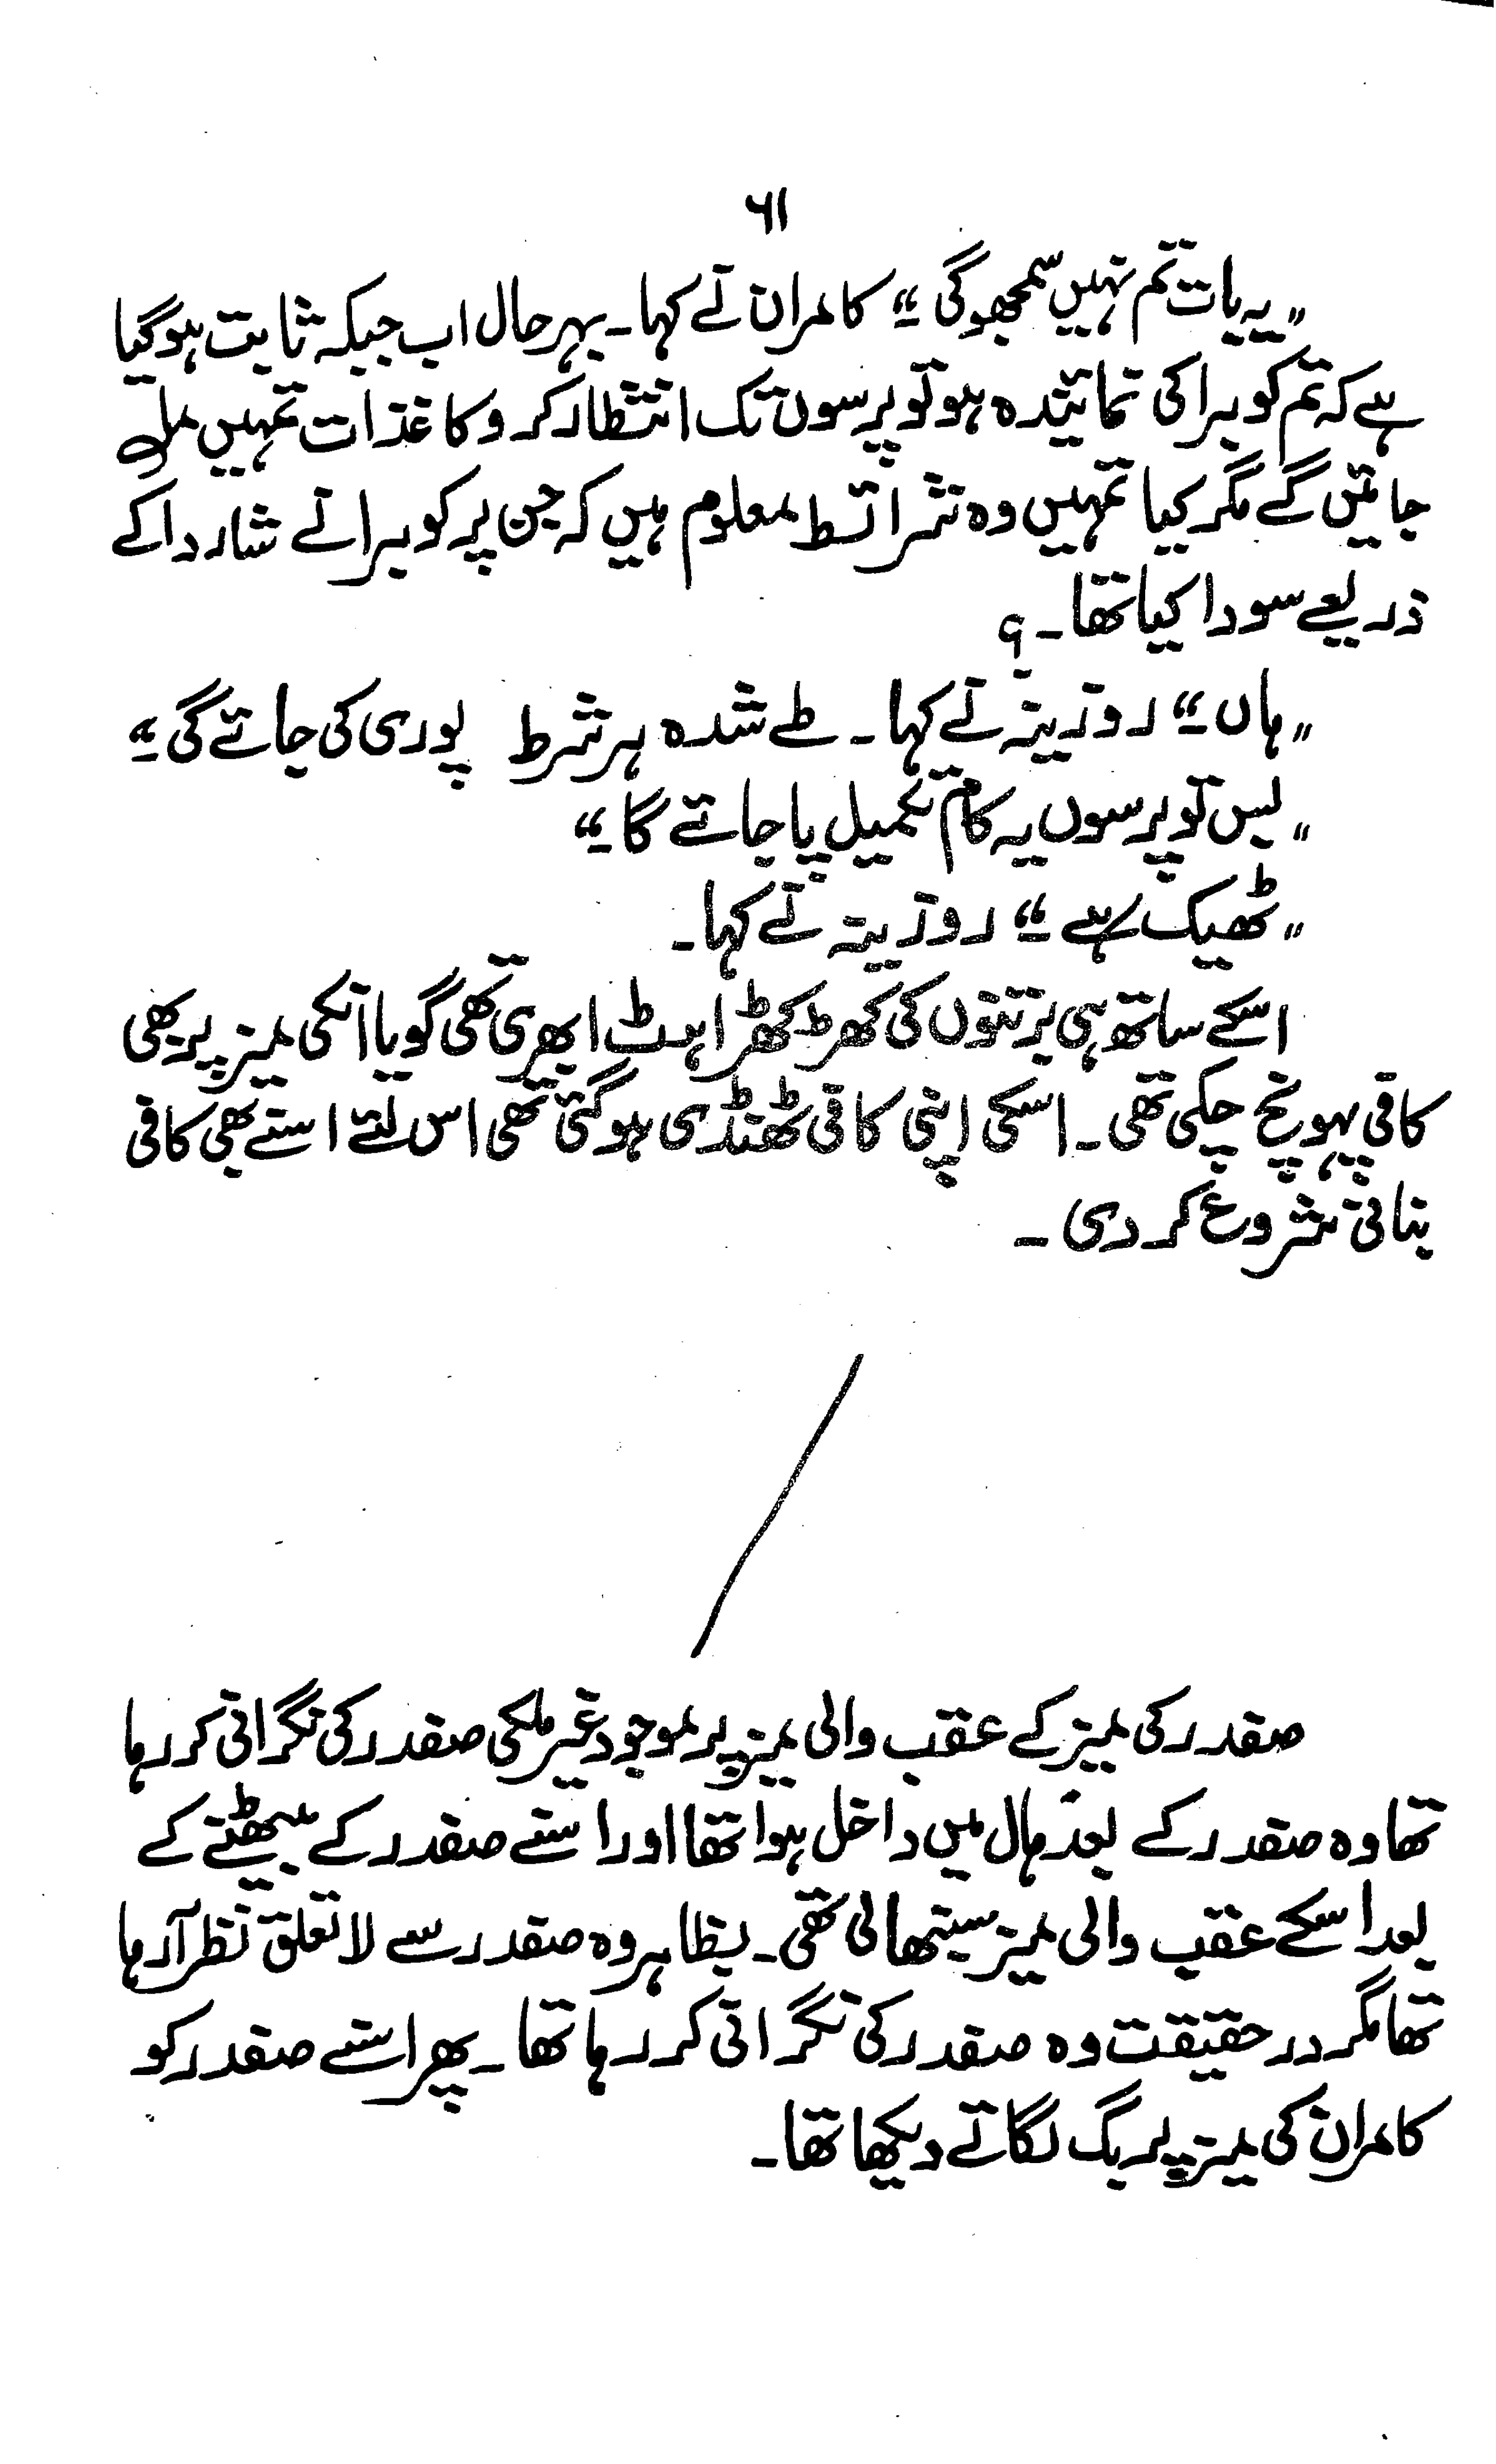 ۶۱
"یہ بات تم نہیں سمجھو گی۔" کامران نے کہا۔ بہر حال اب جبکہ ثابت ہو گیا
ہے کہ تم کوبرا کی نمائیندہ ہو تو پرسوں تک انتظار کرو کاغذات تمہیں مل
جائیں گے مگر کیا تمہیں وہ شرائط معلوم ہیں کہ جن پر کوبرا نے شاردا کے
ذریعے سودا کیا تھا۔؟
"ہاں۔" روزینہ نے کہا۔ طے شدہ ہر شرط پوری کی جائے گی۔"
"بس تو پرسوں یہ کام تکمیل پا جائے گا۔"
"ٹھیک ہے۔" روزینہ نے کہا۔
اسکے ساتھ ہی برتنوں کی کھڑکھڑاہٹ ابھری تھی گویا انکی میز پر بھی
کافی پہونچ چکی تھی۔ اسکی اپنی کافی ٹھنڈی ہو گئی تھی اس لئے اسنے بھی کافی
بنانی شروع کر دی۔
صفدر کی میز کے عقب والی میز پر موجود غیر ملکی صفدر کی نگرانی کر رہا
تھا وہ صفدر کے بعد ہال میں داخل ہوا تھا اور اسنے صفدر کے بیٹھنے کے
بعد اسکے عقب والی میز سنبھالی تھی۔ بظاہر وہ صفدر سے لا تعلق نظر آ رہا
تھا مگر در حقیقت وہ صفدر کی نگرانی کر رہا تھا۔ پھر اسنے صفدر کو
کامران کی میز پر بگ لگاتے دیکھا تھا۔